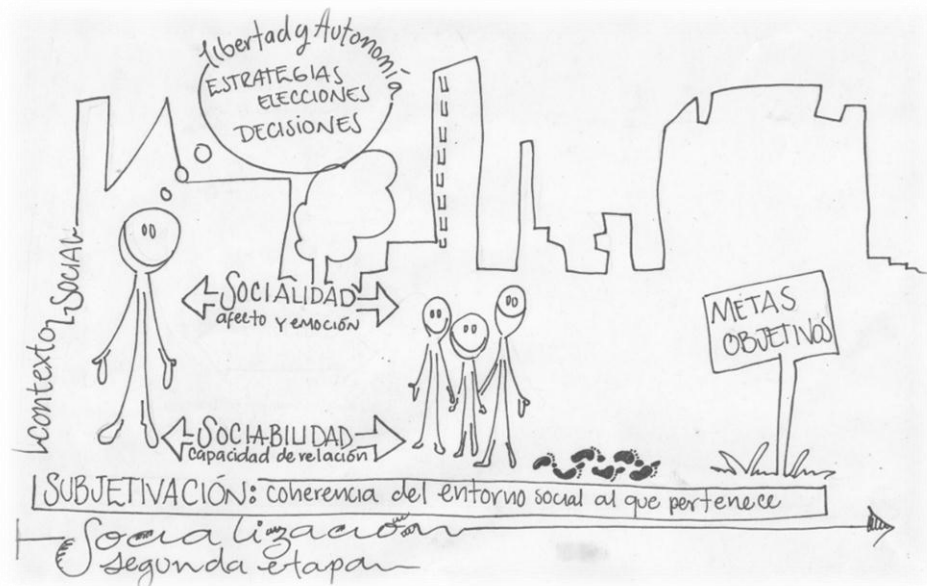 libertad y Autonomía
ESTRATEGIAS
ELECCIONES
DECISIONES
Contexto Social
SOCIALIDAD
afecto y emoción
METAS
OBJETIVOS
SOCIABILIDAD
capacidad de relación
SUBJETIVACIÓN: coherencia del entorno social al que pertenece
Socialización
segunda etapa